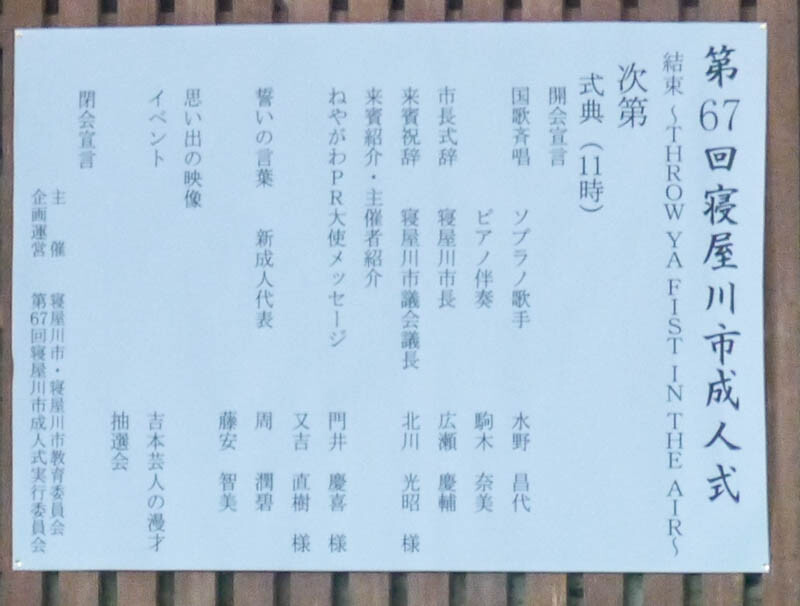 第67回寝屋川市成人式
結束 ～THROW YA FIST IN THE AIR～
次第
式典（11時）
開会宣言
国歌斉唱 ソプラノ歌手 水野 昌代
ピアノ伴奏 駒木 奈美
市長式辞 寝屋川市長 広瀬 慶輔
来賓祝辞 寝屋川市議会議長 北川 光昭 様
来賓紹介・主催者紹介
ねやがわPR大使メッセージ 門井 慶喜 様
又吉 直樹 様
誓いの言葉 新成人代表 周 潤碧
藤安 智美
思い出の映像
イベント 吉本芸人の漫才
抽選会
閉会宣言
主 催 寝屋川市・寝屋川市教育委員会
企画運営 第67回寝屋川市成人式実行委員会